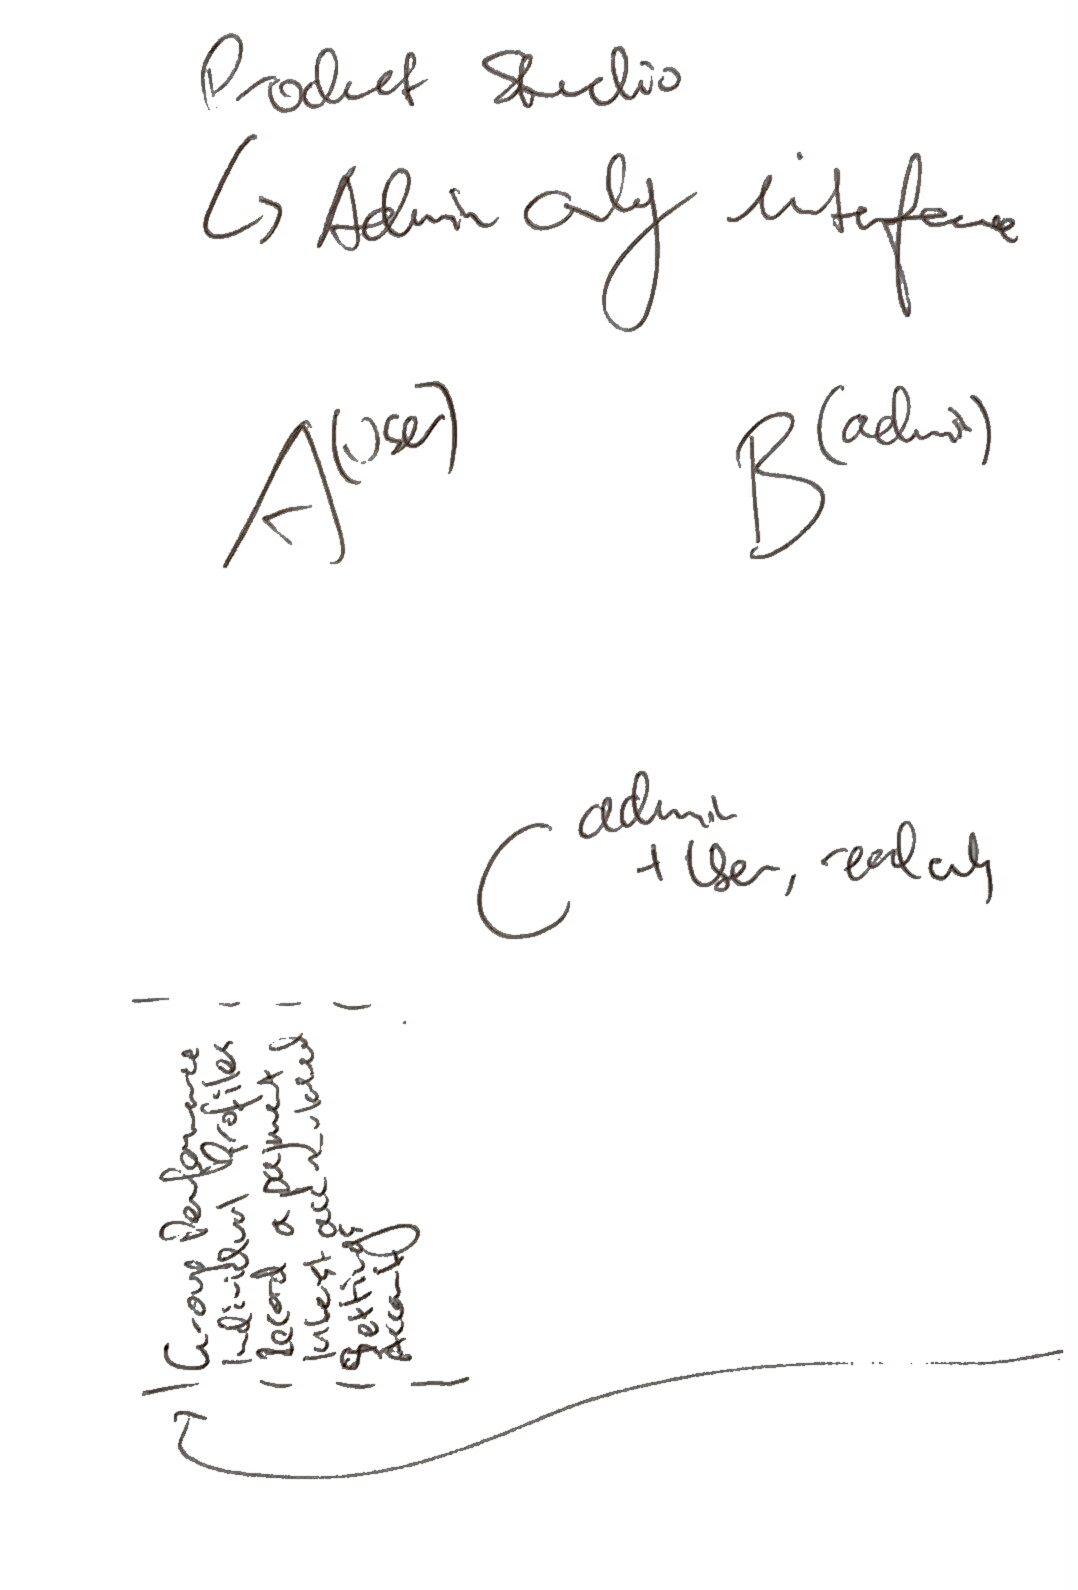 Product Studio
↳ Admin only interface
A (User)
B (admin)
C admin
+ User, read only
Group Performance
Individual Profiles
Record a payment
Interest
Settings
Account